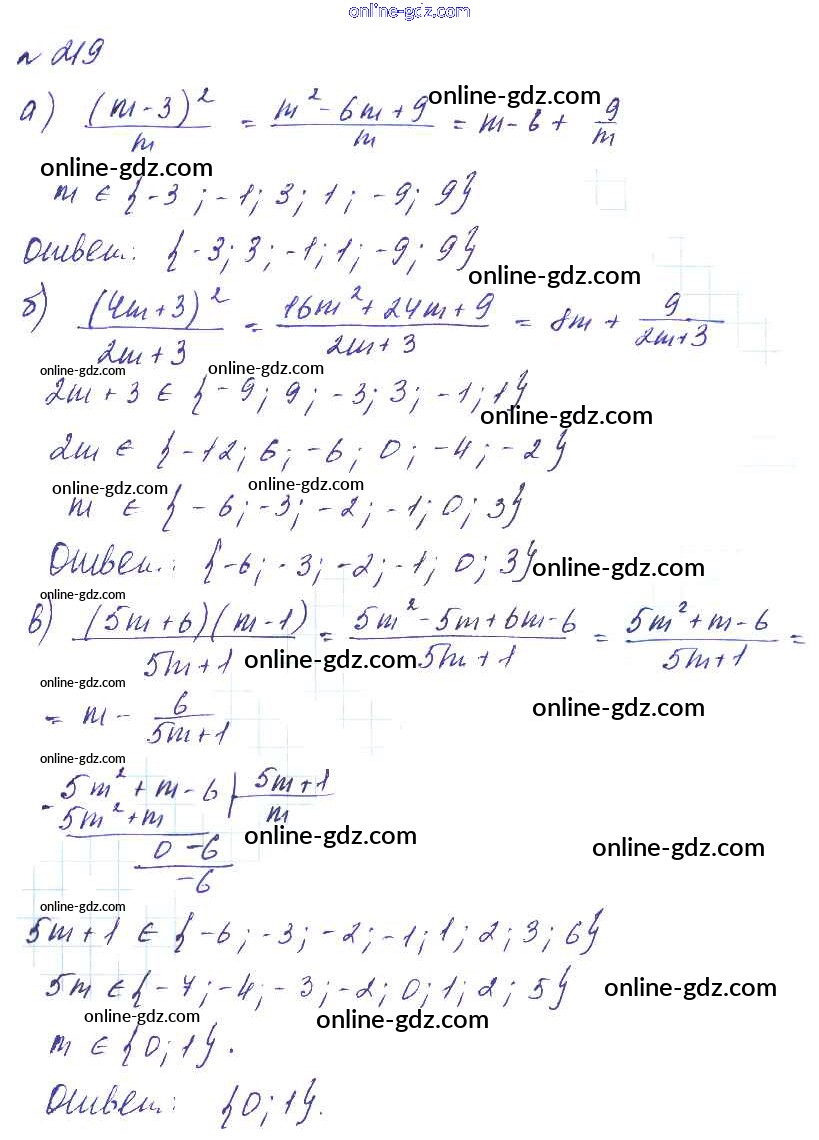 online-gdz.com
№ 219
а) (m-3)²/m = (m² - 6m + 9)/m = m - 6 + 9/m
online-gdz.com
online-gdz.com
m ∈ {-3; -1; 3; 1; -9; 9}
Ответ: {-3; 3; -1; 1; -9; 9}
online-gdz.com
б) (4m+3)²/(2m+3) = (16m² + 24m + 9)/(2m+3) = 8m + 9/(2m+3)
online-gdz.com online-gdz.com
2m + 3 ∈ {-9; 9; -3; 3; -1; 1}
online-gdz.com
2m ∈ {-12; 6; -6; 0; -4; -2}
online-gdz.com online-gdz.com
m ∈ {-6; -3; -2; -1; 0; 3}
Ответ: {-6; -3; -2; -1; 0; 3}
online-gdz.com
online-gdz.com
в) (5m+6)(m-1)/(5m+1) = (5m² - 5m + 6m - 6)/(5m+1) = (5m² + m - 6)/(5m+1) =
online-gdz.com
online-gdz.com
= m - 6/(5m+1)
online-gdz.com
online-gdz.com
- 5m² + m - 6 | 5m+1
5m² + m | m
online-gdz.com
0 - 6
online-gdz.com
-6
online-gdz.com
5m + 1 ∈ {-6; -3; -2; -1; 1; 2; 3; 6}
5m ∈ {-7; -4; -3; -2; 0; 1; 2; 5}
online-gdz.com
online-gdz.com online-gdz.com
m ∈ {0; 1}.
Ответ: {0; 1}.